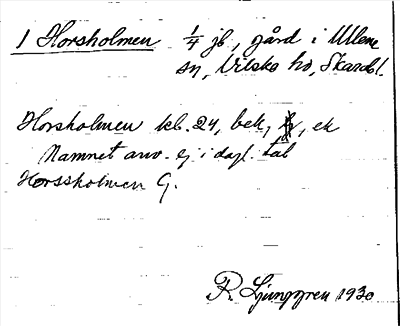 1 Horsholmen 1/4 jb, gård i Ullene
sn, Vilske hd, Skarabl.
Horsholmen kb. 24, bek, ek
Namnet anv. ej i dagl. tal
Horssholmen G.
R. Ljunggren 1930